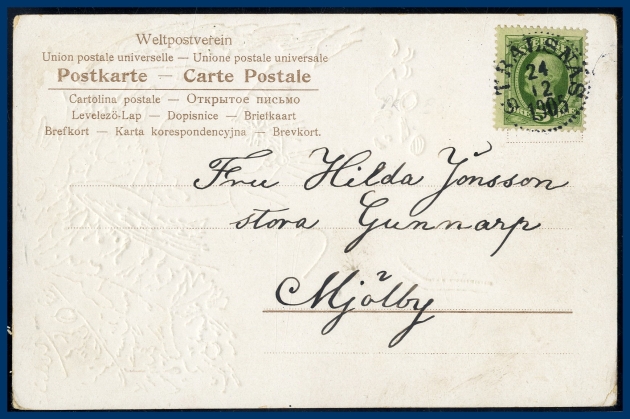 Weltpostverein
Union postale universelle — Unione postale universale
Postkarte — Carte Postale
Cartolina postale — Открытое письмо
Levelező-Lap — Dopisnice — Briefkaart
Brefkort — Karta korespondencyjna — Brevkort.
STRALSNÄS
24
12
1903
Fru Hilda Jönsson
stora Gunnarp
Mjölby